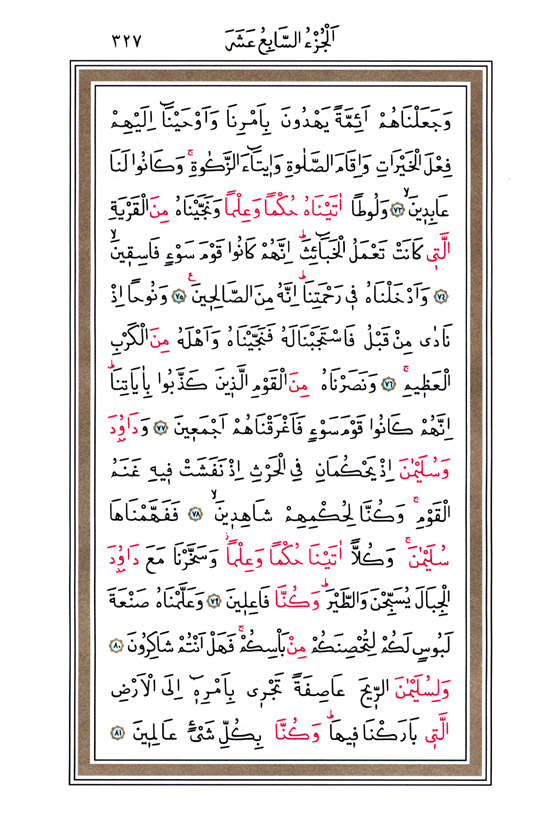 اَلْجُزْءُ السَّابِعُ عَشَرَ ٣٢٧
وَجَعَلْنَاهُمْ اَئِمَّةً يَهْدُونَ بِاَمْرِنَا وَاَوْحَيْنَٓا اِلَيْهِمْ
فِعْلَ الْخَيْرَاتِ وَاِقَامَ الصَّلٰوةِ وَا۪يتَٓاءَ الزَّكٰوةِۚ وَكَانُوا لَنَا
عَابِد۪ينَۙ ﴿٧٣﴾ وَلُوطًا اٰتَيْنَاهُ حُكْمًا وَعِلْمًا وَنَجَّيْنَاهُ مِنَ الْقَرْيَةِ
الَّت۪ي كَانَتْ تَعْمَلُ الْخَبَٓائِثَۜ اِنَّهُمْ كَانُوا قَوْمَ سَوْءٍ فَاسِق۪ينَۙ
﴿٧٤﴾ وَاَدْخَلْنَاهُ ف۪ي رَحْمَتِنَاۜ اِنَّهُ مِنَ الصَّالِح۪ينَ۟ ﴿٧٥﴾ وَنُوحًا اِذْ
نَادٰى مِنْ قَبْلُ فَاسْتَجَبْنَا لَهُ فَنَجَّيْنَاهُ وَاَهْلَهُ مِنَ الْكَرْبِ
الْعَظ۪يمِۚ ﴿٧٦﴾ وَنَصَرْنَاهُ مِنَ الْقَوْمِ الَّذ۪ينَ كَذَّبُوا بِاٰيَاتِنَاۜ
اِنَّهُمْ كَانُوا قَوْمَ سَوْءٍ فَاَغْرَقْنَاهُمْ اَجْمَع۪ينَ ﴿٧٧﴾ وَدَاوُ۫دَ
وَسُلَيْمٰنَ اِذْ يَحْكُمَانِ فِي الْحَرْثِ اِذْ نَفَشَتْ ف۪يهِ غَنَمُ
الْقَوْمِۚ وَكُنَّا لِحُكْمِهِمْ شَاهِد۪ينَۙ ﴿٧٨﴾ فَفَهَّمْنَاهَا
سُلَيْمٰنَۚ وَكُلًّا اٰتَيْنَا حُكْمًا وَعِلْمًاۘ وَسَخَّرْنَا مَعَ دَاوُ۫دَ
الْجِبَالَ يُسَبِّحْنَ وَالطَّيْرَۜ وَكُنَّا فَاعِل۪ينَ ﴿٧٩﴾ وَعَلَّمْنَاهُ صَنْعَةَ
لَبُوسٍ لَكُمْ لِتُحْصِنَكُمْ مِنْ بَأْسِكُمْۚ فَهَلْ اَنْتُمْ شَاكِرُونَ ﴿٨٠﴾
وَلِسُلَيْمٰنَ الرّ۪يحَ عَاصِفَةً تَجْر۪ي بِاَمْرِه۪ٓ اِلَى الْاَرْضِ
الَّت۪ي بَارَكْنَا ف۪يهَاۜ وَكُنَّا بِكُلِّ شَيْءٍ عَالِم۪ينَ ﴿٨١﴾